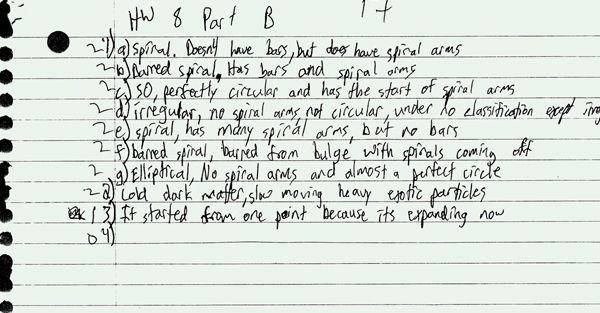 HW 8 Part B 17
2 1) a) Spiral. Doesn't have bars, but does have spiral arms
2 b) Barred spiral, Has bars and spiral arms
2 c) S0, perfectly circular and has the start of spiral arms
2 d) irregular, no spiral arms, not circular, under no classification except irreg
2 e) spiral, has many spiral arms, but no bars
2 f) barred spiral, barred from bulge with spirals coming off
2 g) Elliptical, No spiral arms and almost a perfect circle
2 2) Cold dark matter, slow moving heavy exotic particles
1 3) It started from one point because its expanding now
0 4)